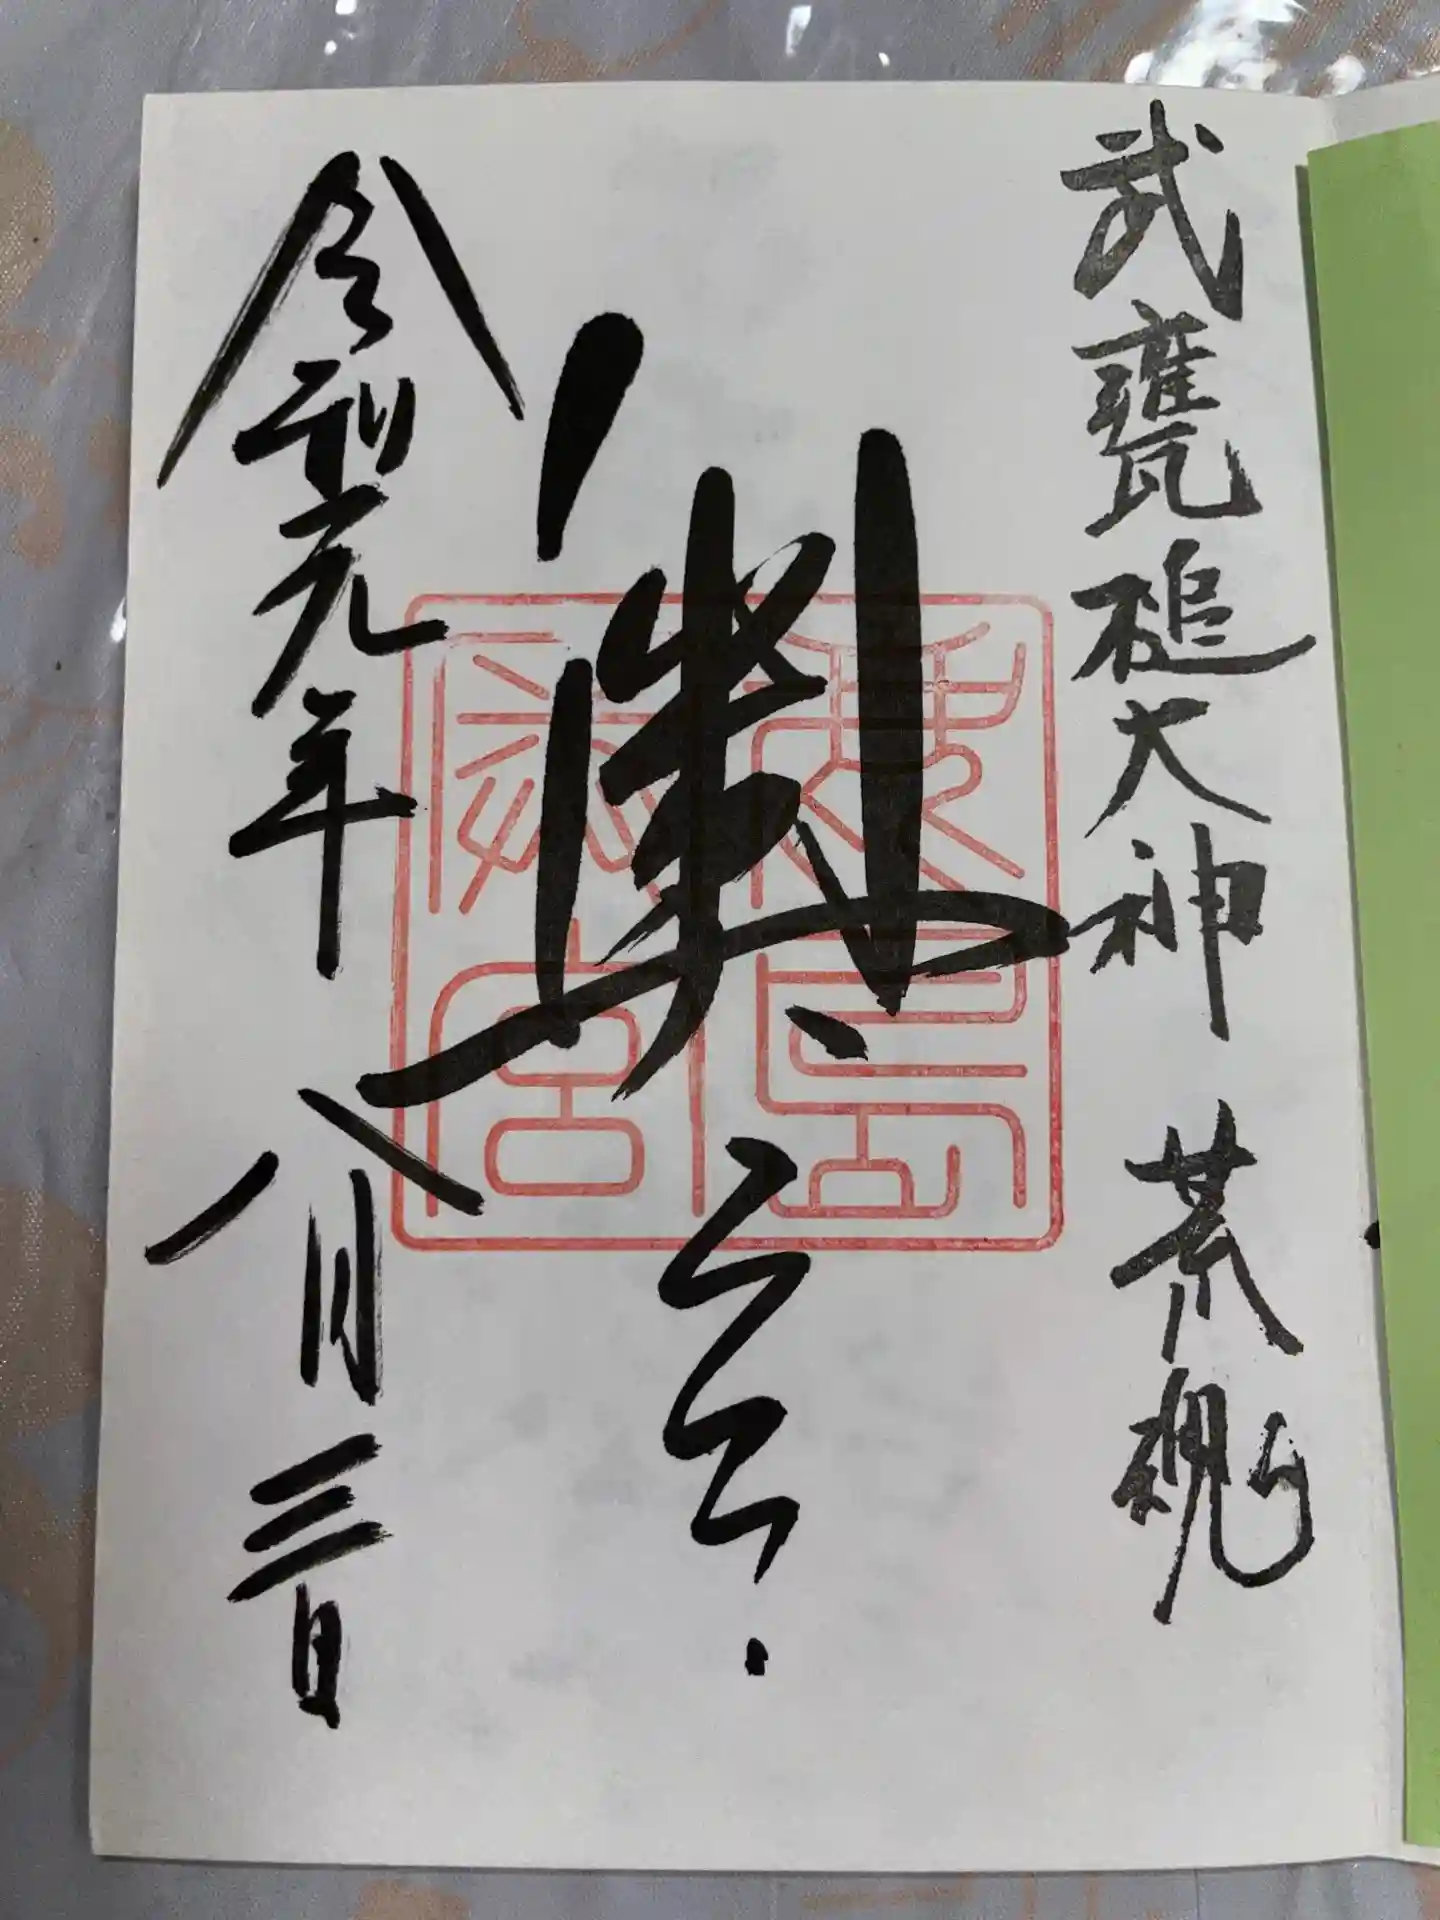 武甕槌大神 荒魂
奥宮
鹿島
奥宮
令和元年八月三日